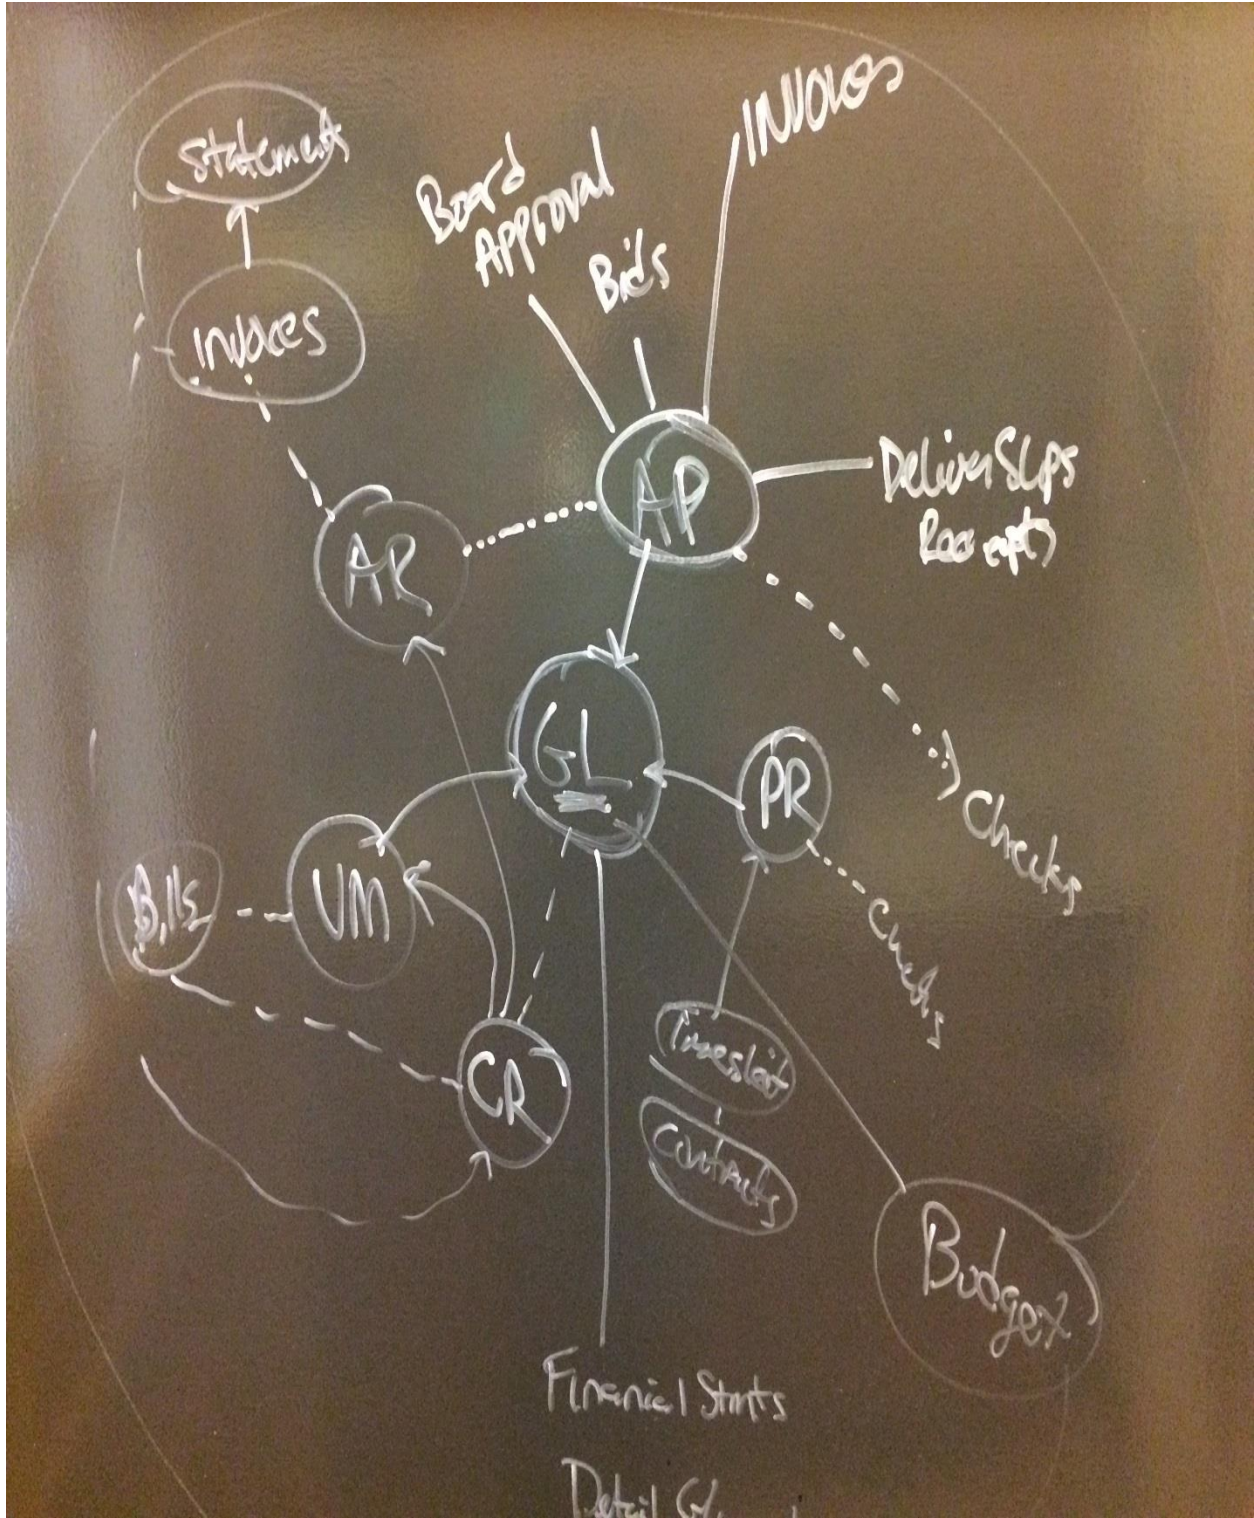 Statement
INVOICES
Board
Approval
Bids
Invoices
AP
Deliver Slips
Receipts
AR
GL
PR
Checks
UM
Bills
Checks
CR
Timesheet
Contracts
Budget
Financial Stmts
Detail GL